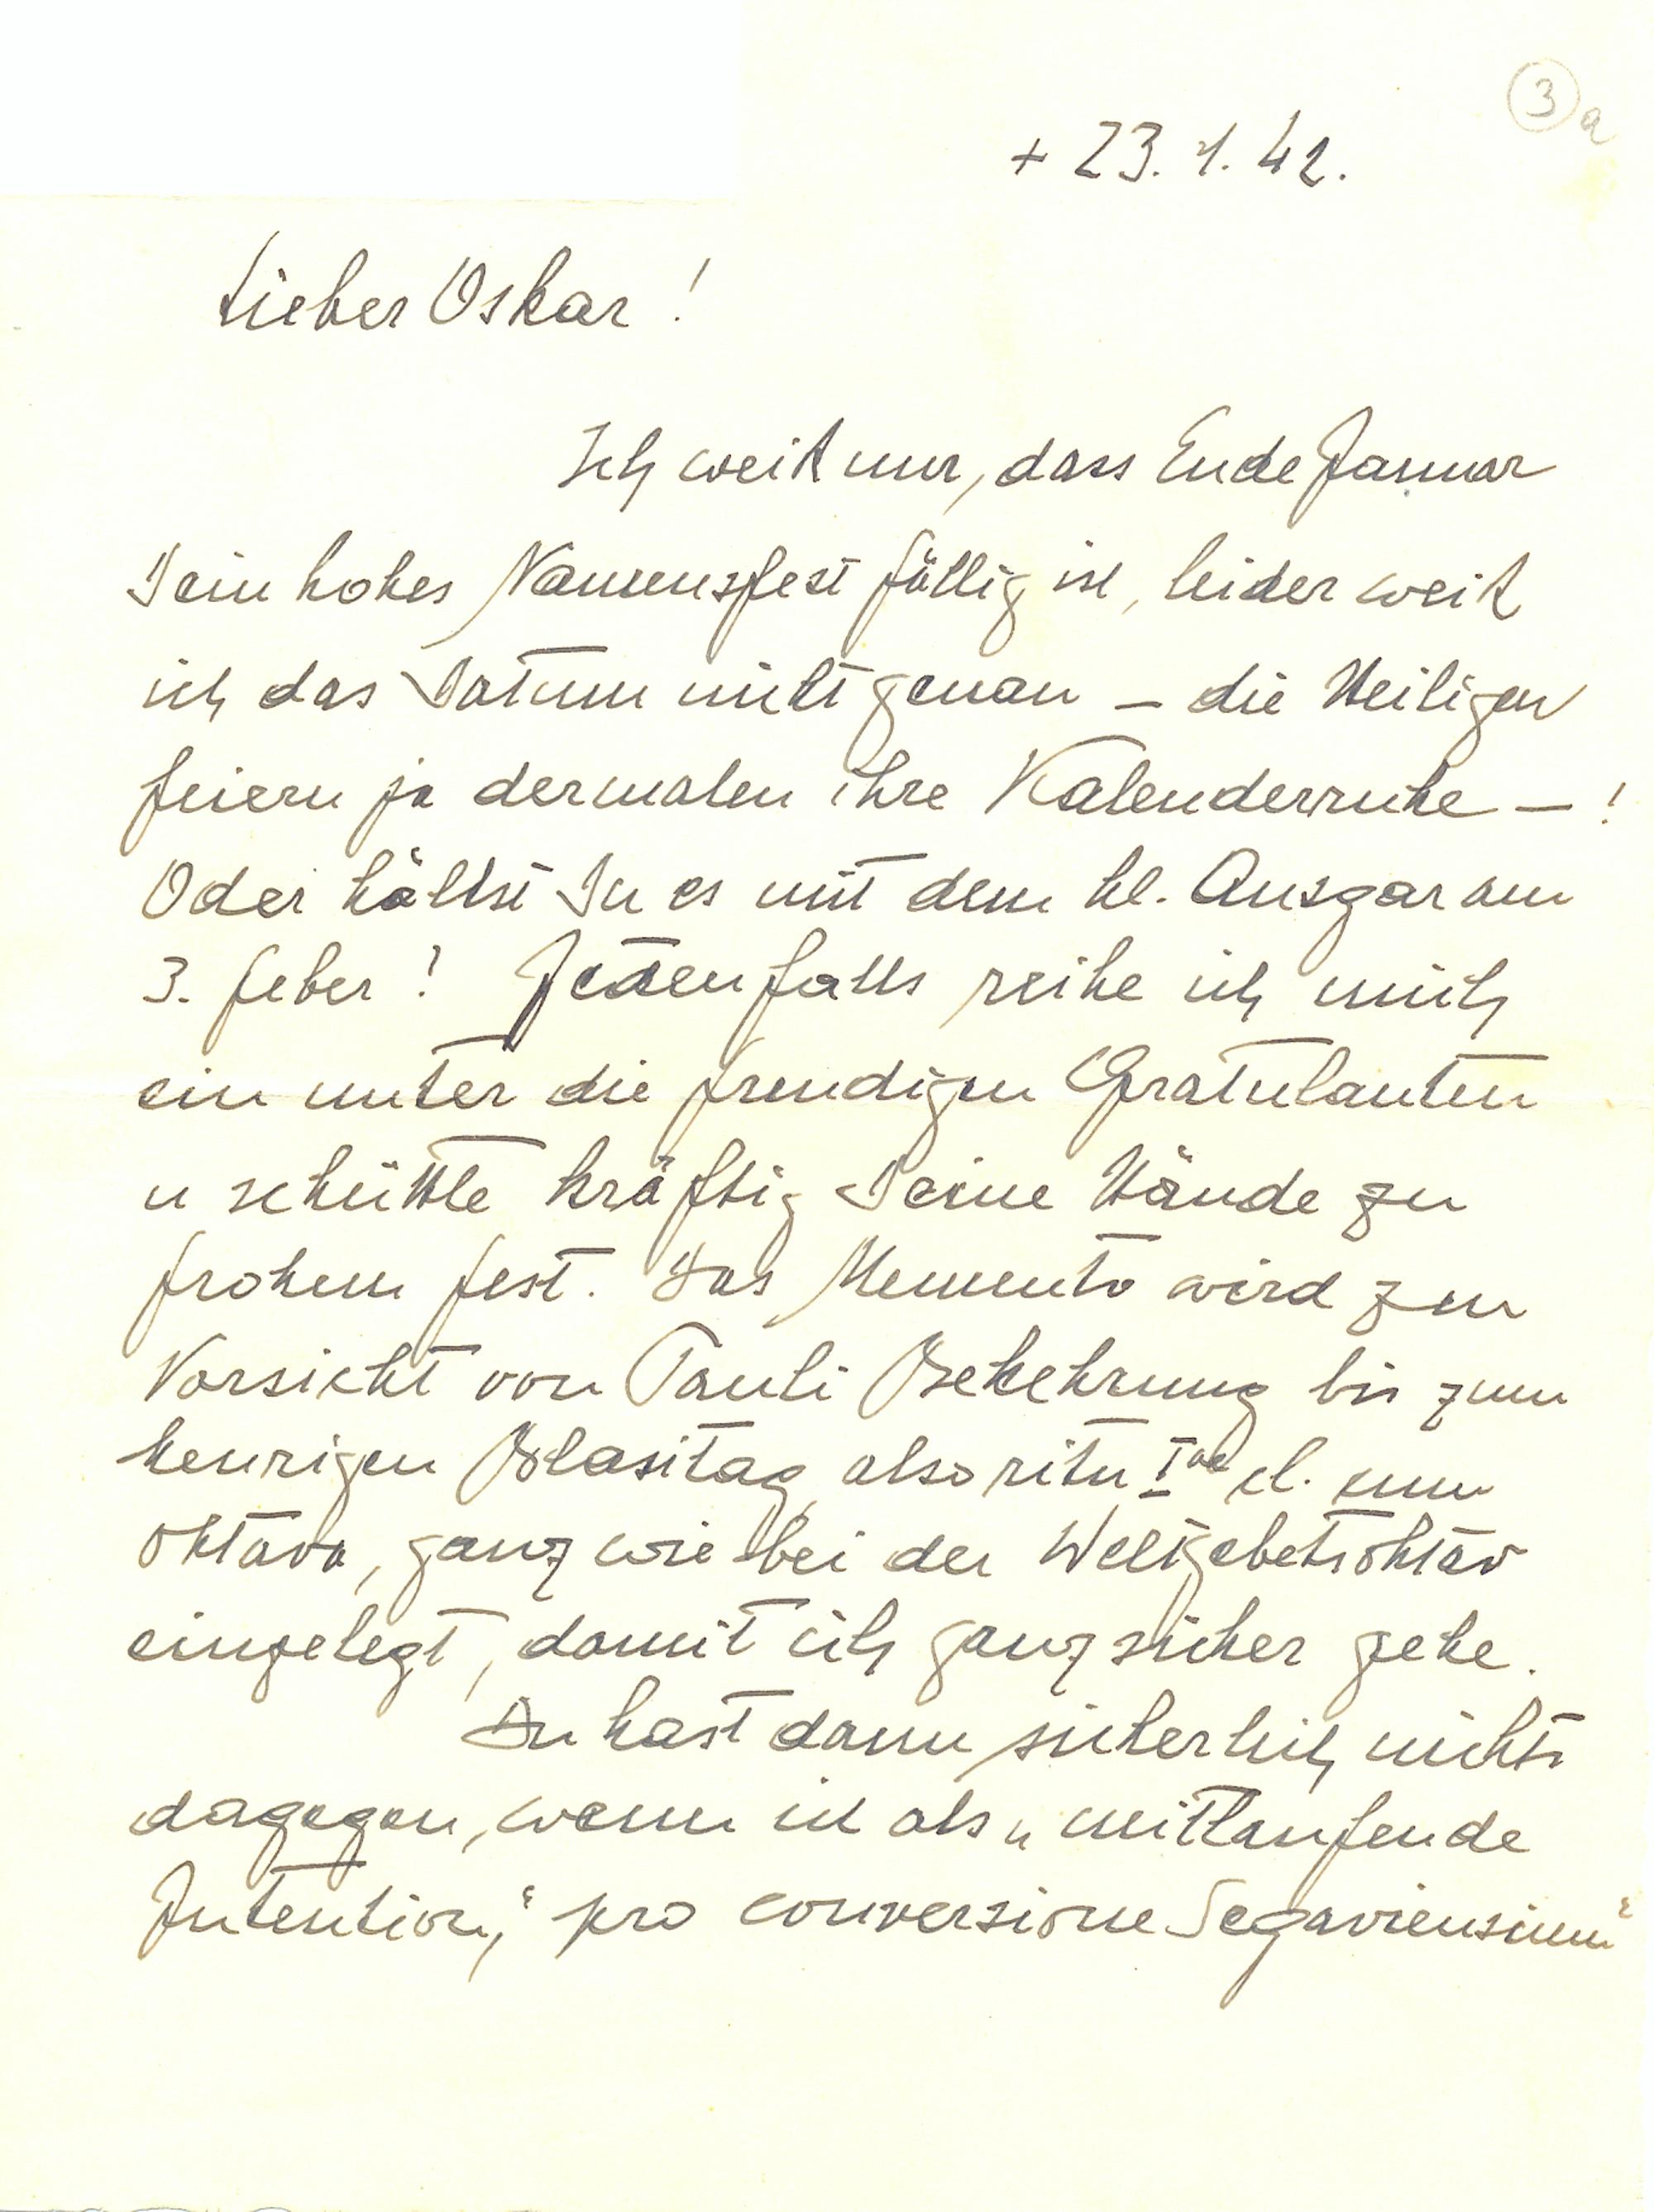 3 a
+ 23. 1. 42.
Lieber Oskar!
Ich weiß nur, dass Ende Januar
Dein hohes Namensfest fällig ist, leider weiß
ich das Datum nicht genau – die Heiligen
feiern ja dermalen ihre Kalenderruhe – !
Oder hältst Du es mit dem hl. Ansgar am
3. Feber? Jedenfalls reihe ich mich
ein unter die freudigen Gratulanten
u schüttle kräftig Deine Hände zu
frohem Fest. Das Memento wird zur
Vorsicht von Pauli Bekehrung bis zum
heurigen Blasitag, also ritu Iae cl. cum
oktava, ganz wie bei der Weltgebetsoktav
eingelegt, damit ich ganz sicher gehe.
Du hast dann sicherlich nichts
dagegen, wenn ich als „mitlaufende
Intention," pro conversione Segaviensium"